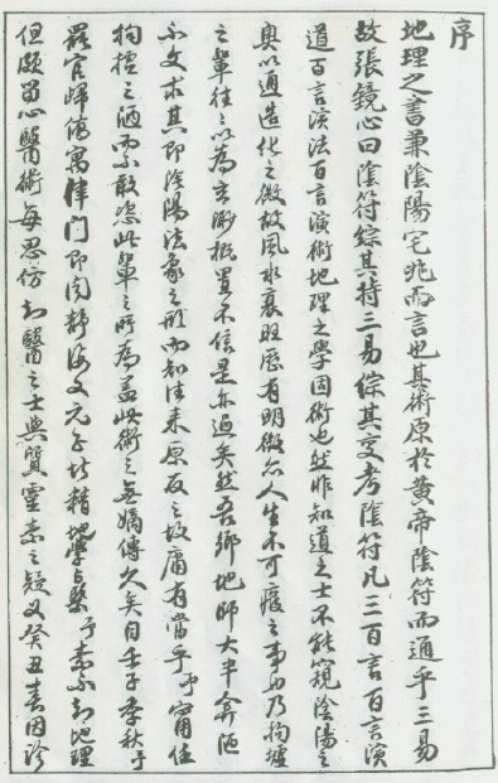 序
地理之書兼陰陽宅兆而言也其術原於黃帝陰符而通乎三易
故張鏡心曰陰符綜其持三易綜其変考陰符凡三百言百言演
道百言演法百言演術地理之學固術也然非知道之士不能窺陰陽之
奧以通造化之微故風水衰旺歷有明徵尒人生不可癈之事也乃拘墟
之輩往〻以為玄渺概置不信是亦過矣然吾鄉地師大半弇陋
不文求其即陰陽法象之形而知往来原反之故庸有當乎予甯任
拘墟之陋而不敢恣此輩之所為盖此術之無嫡傳久矣自壬子季秋予
罷官歸僑寓律门即闻静海文元子皆精地學与棨予素不知地理
但頗留心醫術每思仿知醫之士與質靈素之疑义癸丑春因診